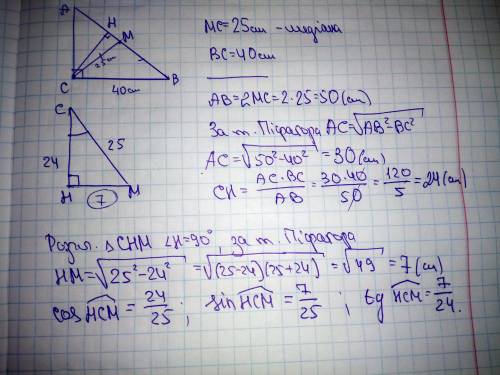 A
H
M
25см
C
40см
B
MC=25см - медіана
BC=40см
AB=2MC=2·25=50(см)
За т. Піфагора AC=√AB²-BC²
AC=√50²-40²=30(см)
CH=AC·BC/AB=30·40/50=120/5=24(см)
C
24
25
H
7
M
Розгл. ΔCHM ∠H=90°, за т. Піфагора
HM=√25²-24²=√(25-24)(25+24)=√49=7(см)
cos HCM=24/25; sin HCM=7/25; tg HCM=7/24.